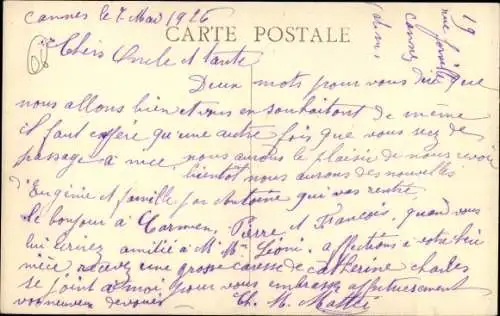 Cannes le 7 Mai 1926
CARTE POSTALE
Chers Oncle et tante
19
rue
Cannes
Deux mots pour vous dire que
nous allons bien et vous en souhaitont de même
il faut espéré qu'une autre fois que vous serez de
passage a nice nous aurons le plaisir de nous revoir
bientot nous aurons des nouvelles
d'Eugénie et famille par Antoine qui vas rentré
le bonjour à Carmen, Pierre et François, quand vous
lui écrirez amitié à M. Mme Léoni, affections a votre
nièce, recevez une grosse caresse de Catherine Charles
se joint a moi pour vous embrasser affectueusement
vos neveux dévoués Ch. M. Mattei